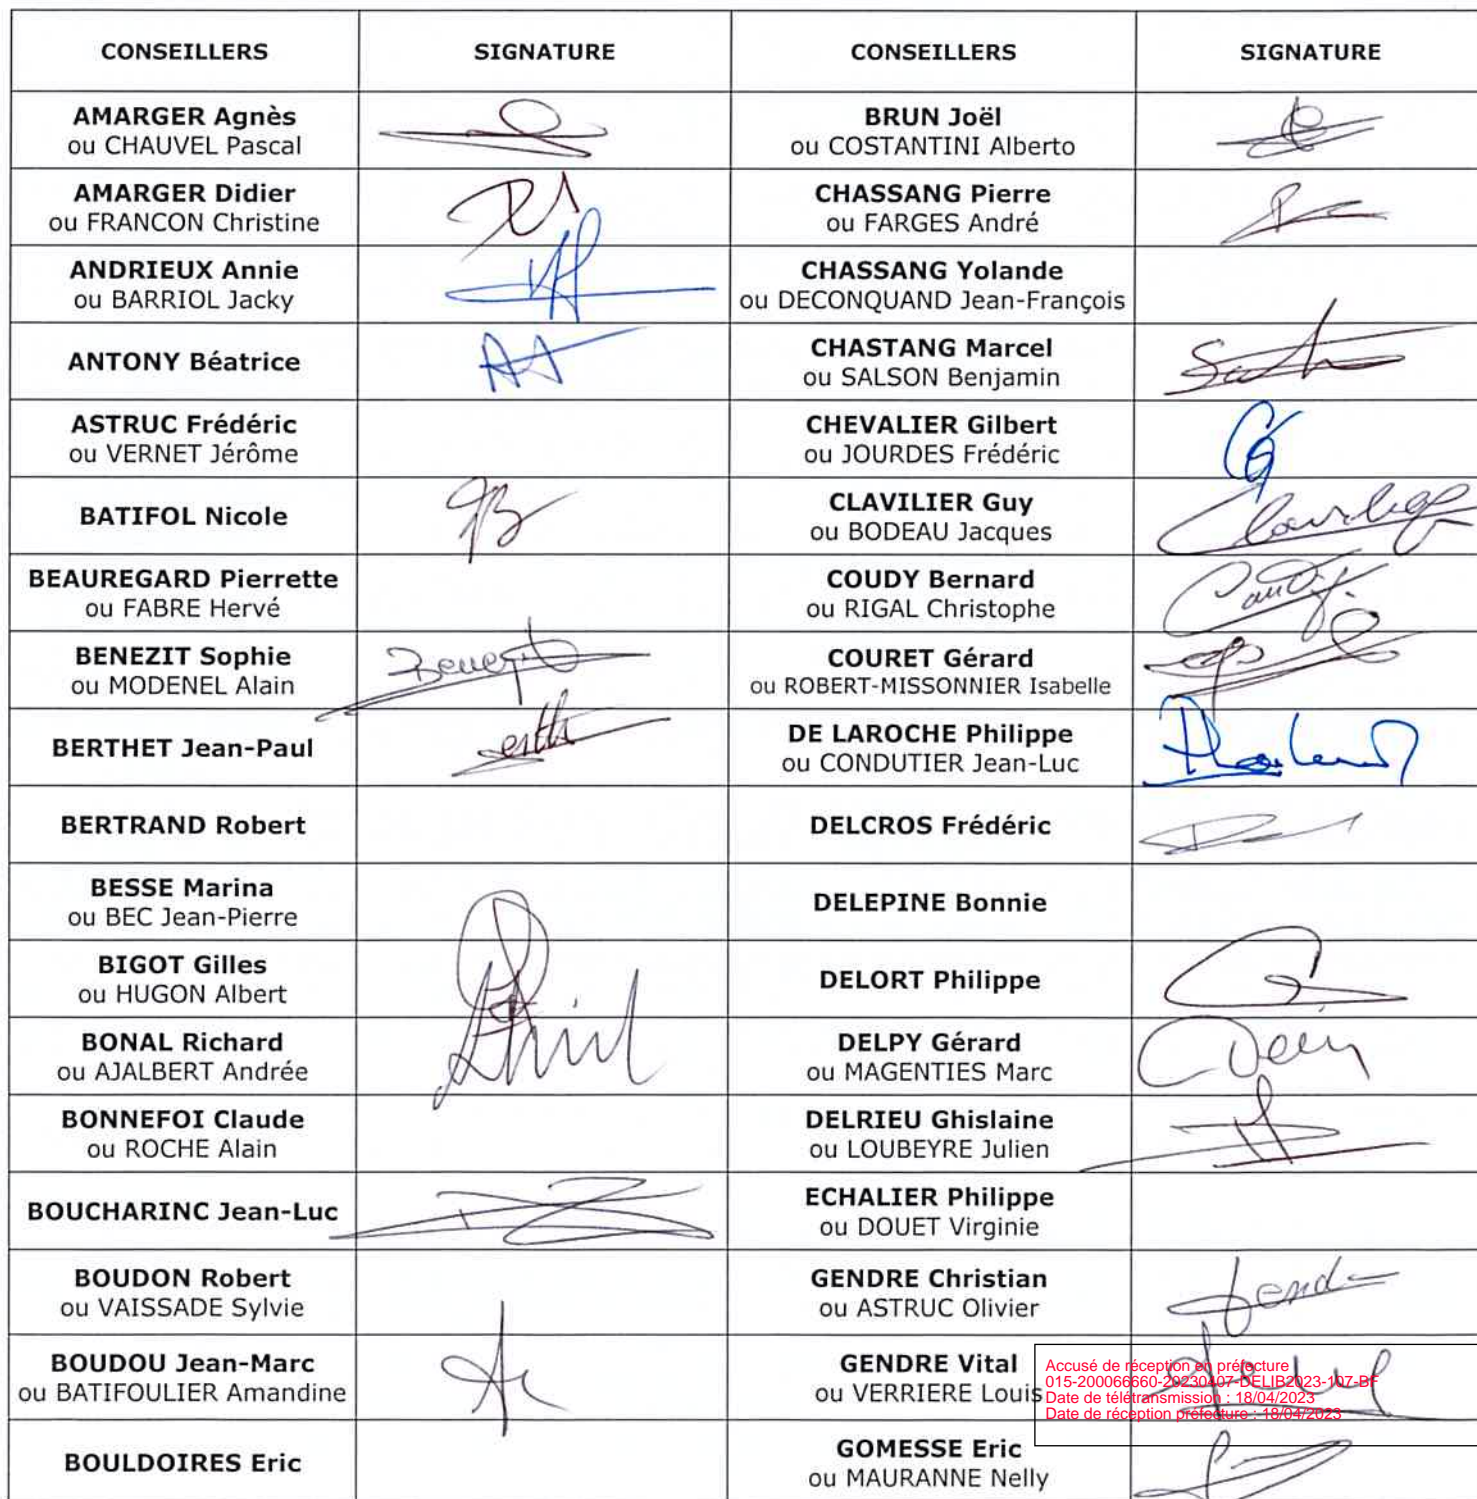 CONSEILLERS SIGNATURE CONSEILLERS SIGNATURE
AMARGER Agnès
ou CHAUVEL Pascal
BRUN Joël
ou COSTANTINI Alberto
AMARGER Didier
ou FRANCON Christine
CHASSANG Pierre
ou FARGES André
ANDRIEUX Annie
ou BARRIOL Jacky
CHASSANG Yolande
ou DECONQUAND Jean-François
ANTONY Béatrice
CHASTANG Marcel
ou SALSON Benjamin
ASTRUC Frédéric
ou VERNET Jérôme
CHEVALIER Gilbert
ou JOURDES Frédéric
BATIFOL Nicole
CLAVILIER Guy
ou BODEAU Jacques
BEAUREGARD Pierrette
ou FABRE Hervé
COUDY Bernard
ou RIGAL Christophe
BENEZIT Sophie
ou MODENEL Alain
COURET Gérard
ou ROBERT-MISSONNIER Isabelle
BERTHET Jean-Paul
DE LAROCHE Philippe
ou CONDUTIER Jean-Luc
BERTRAND Robert
DELCROS Frédéric
BESSE Marina
ou BEC Jean-Pierre
DELEPINE Bonnie
BIGOT Gilles
ou HUGON Albert
DELORT Philippe
BONAL Richard
ou AJALBERT Andrée
DELPY Gérard
ou MAGENTIES Marc
BONNEFOI Claude
ou ROCHE Alain
DELRIEU Ghislaine
ou LOUBEYRE Julien
BOUCHARINC Jean-Luc
ECHALIER Philippe
ou DOUET Virginie
BOUDON Robert
ou VAISSADE Sylvie
GENDRE Christian
ou ASTRUC Olivier
BOUDOU Jean-Marc
ou BATIFOULIER Amandine
GENDRE Vital
ou VERRIERE Louis
Accusé de réception en préfecture
015-200066660-20230407-DELIB2023-107-BF
Date de télétransmission : 18/04/2023
Date de réception préfecture : 18/04/2023
BOULDOIRES Eric
GOMESSE Eric
ou MAURANNE Nelly